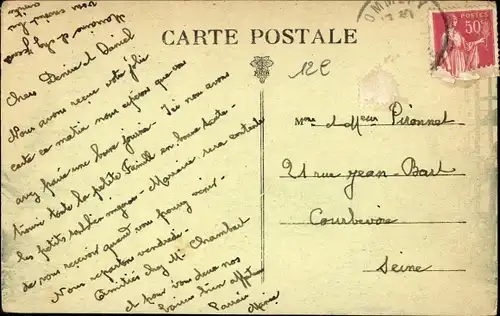 CARTE POSTALE
12€
50c
Chers Denise et Daniel
Nous avons reçue votre jolie
carte ce matin nous espérons que vous
avez passé une bonne journée. Ici nous avons
trouvé toute la petite famille en bonne santé
les petits sont bien mignons. Marraine sera contente
de vous recevoir quand vous pourrez venir.
Nous repartons vendredi.
Amitiés de Mr Chambart
et pour vous deux nos
baisers bien affectueux
Parrain
Mme et Monsieur Pironnet
21 rue Jean Bart
Courbevoie
Seine